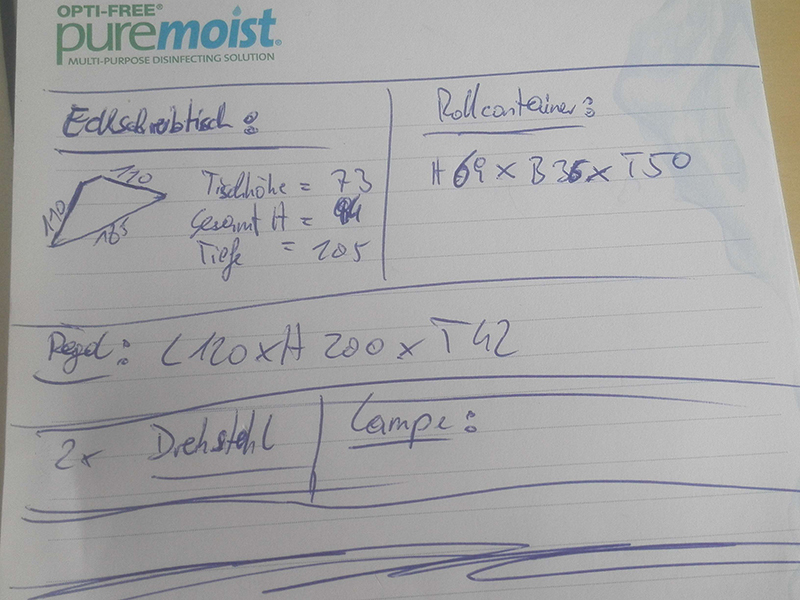 OPTI-FREE®
puremoist®
MULTI-PURPOSE DISINFECTING SOLUTION
Eckschreibtisch:
110
110
165
Tischhöhe = 73
Gesamt H =
Tiefe = 105
Rollcontainer:
H 69 x B 36 x T50
Regal: L 120 x H 200 x T 42
2x Drehstuhl
Lampe: